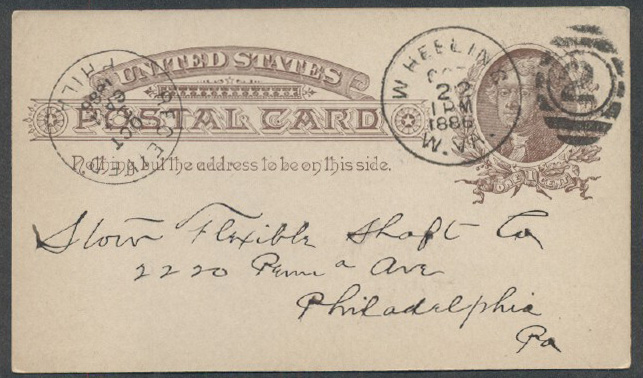 UNITED STATES
POSTAL CARD
Nothing but the address to be on this side.
WHEELING
OCT
22
1 PM
1886
W. VA.
2
RECEIVED
OCT
1886
PHIL
ONE 1 CENT
Stow Flexible Shaft Co
2220 Penna Ave
Philadelphia
Pa